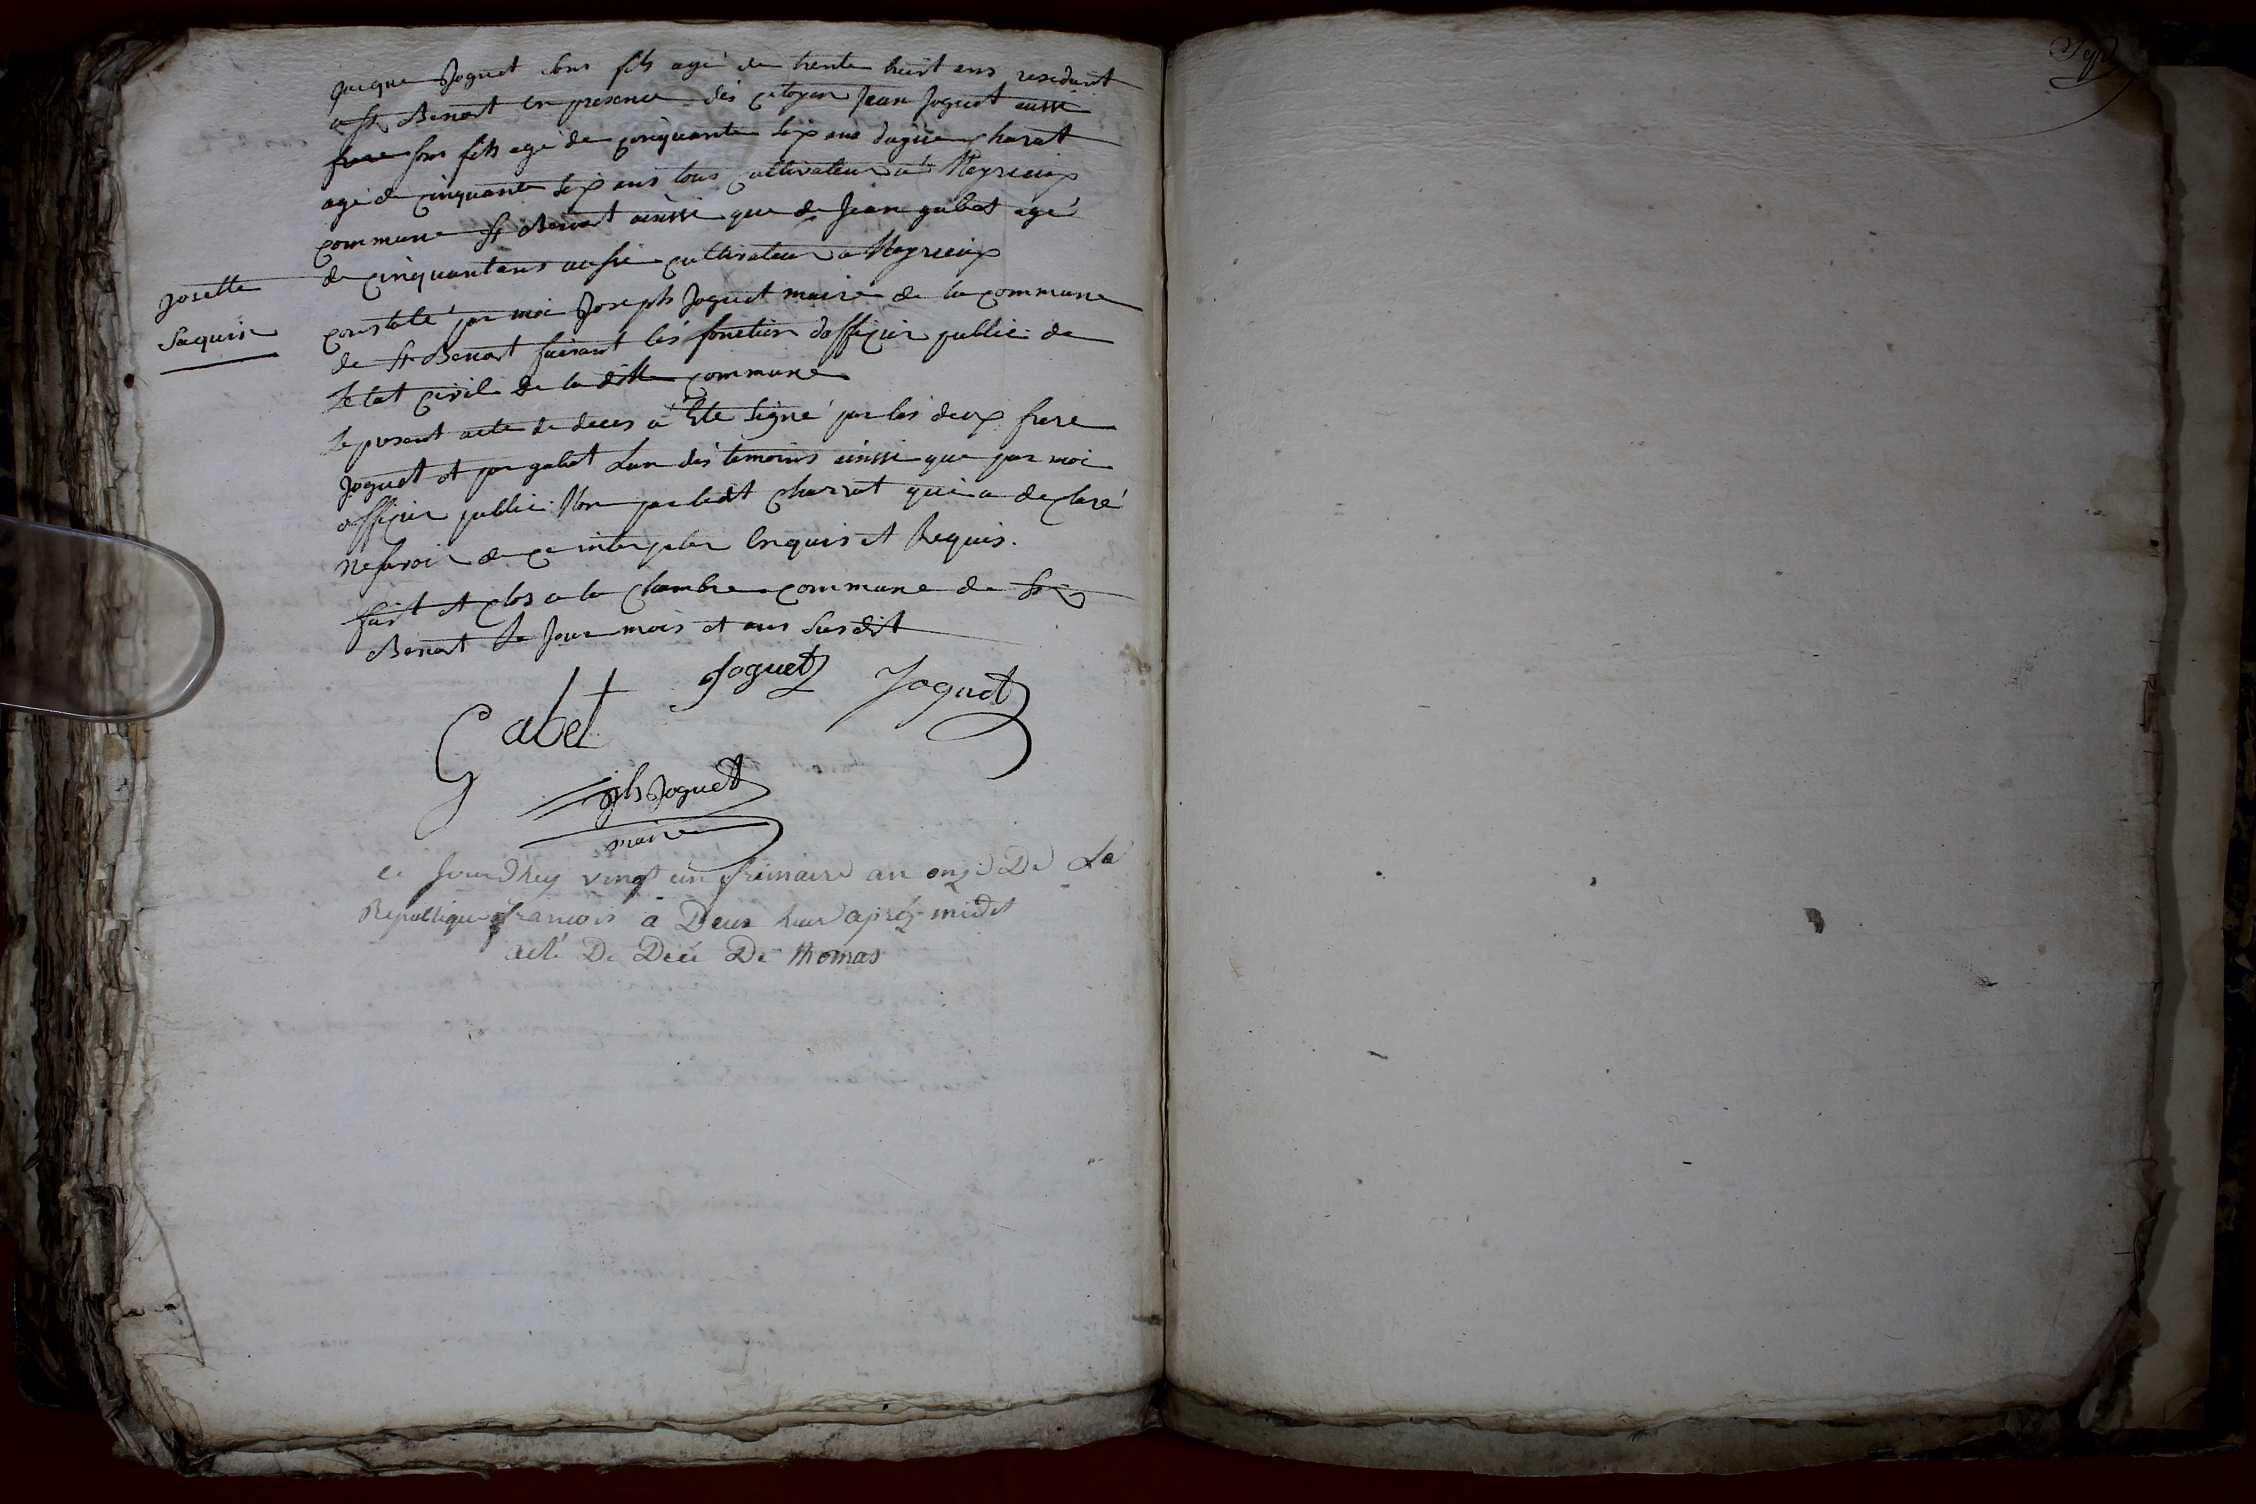 Jacque Joguet son fils agé de trente huit ans residant
a St Benoit en presence dés citoyen Jean Joguet aussi
frere son fils agé de cinquante six ans charat
agé de cinquante six ans tous cultivateur a Meyrieux
commune St Benoit ainssi que de Jean gabet agé
de cinquant ans aussi cultivateur a Meyrieux
Josette
Saquin
constaté par moi Joseph Joguet maire de la commune
de St Benoit faisant les fonction dofficier public de
Letat civil de la ditte commune
Le present acte de deces a Eté signé par les deux frere
Joguet et par gabet Lun dés temoins ainssi que par moi
officier public Non par ledit charrat qui a declaré
Ne savoir de ce interpeler Enquis et Requis.
fait et clos a la chambre commune de St
Benoit Le Jour mois et ans susdit
Joguet Joguet
Gabet
jph Joguet
maire
ce Jourdhuy vingt un frimaire an onze De La
Republique francois a Deux heur aprez midit
acte De Décé De thomas